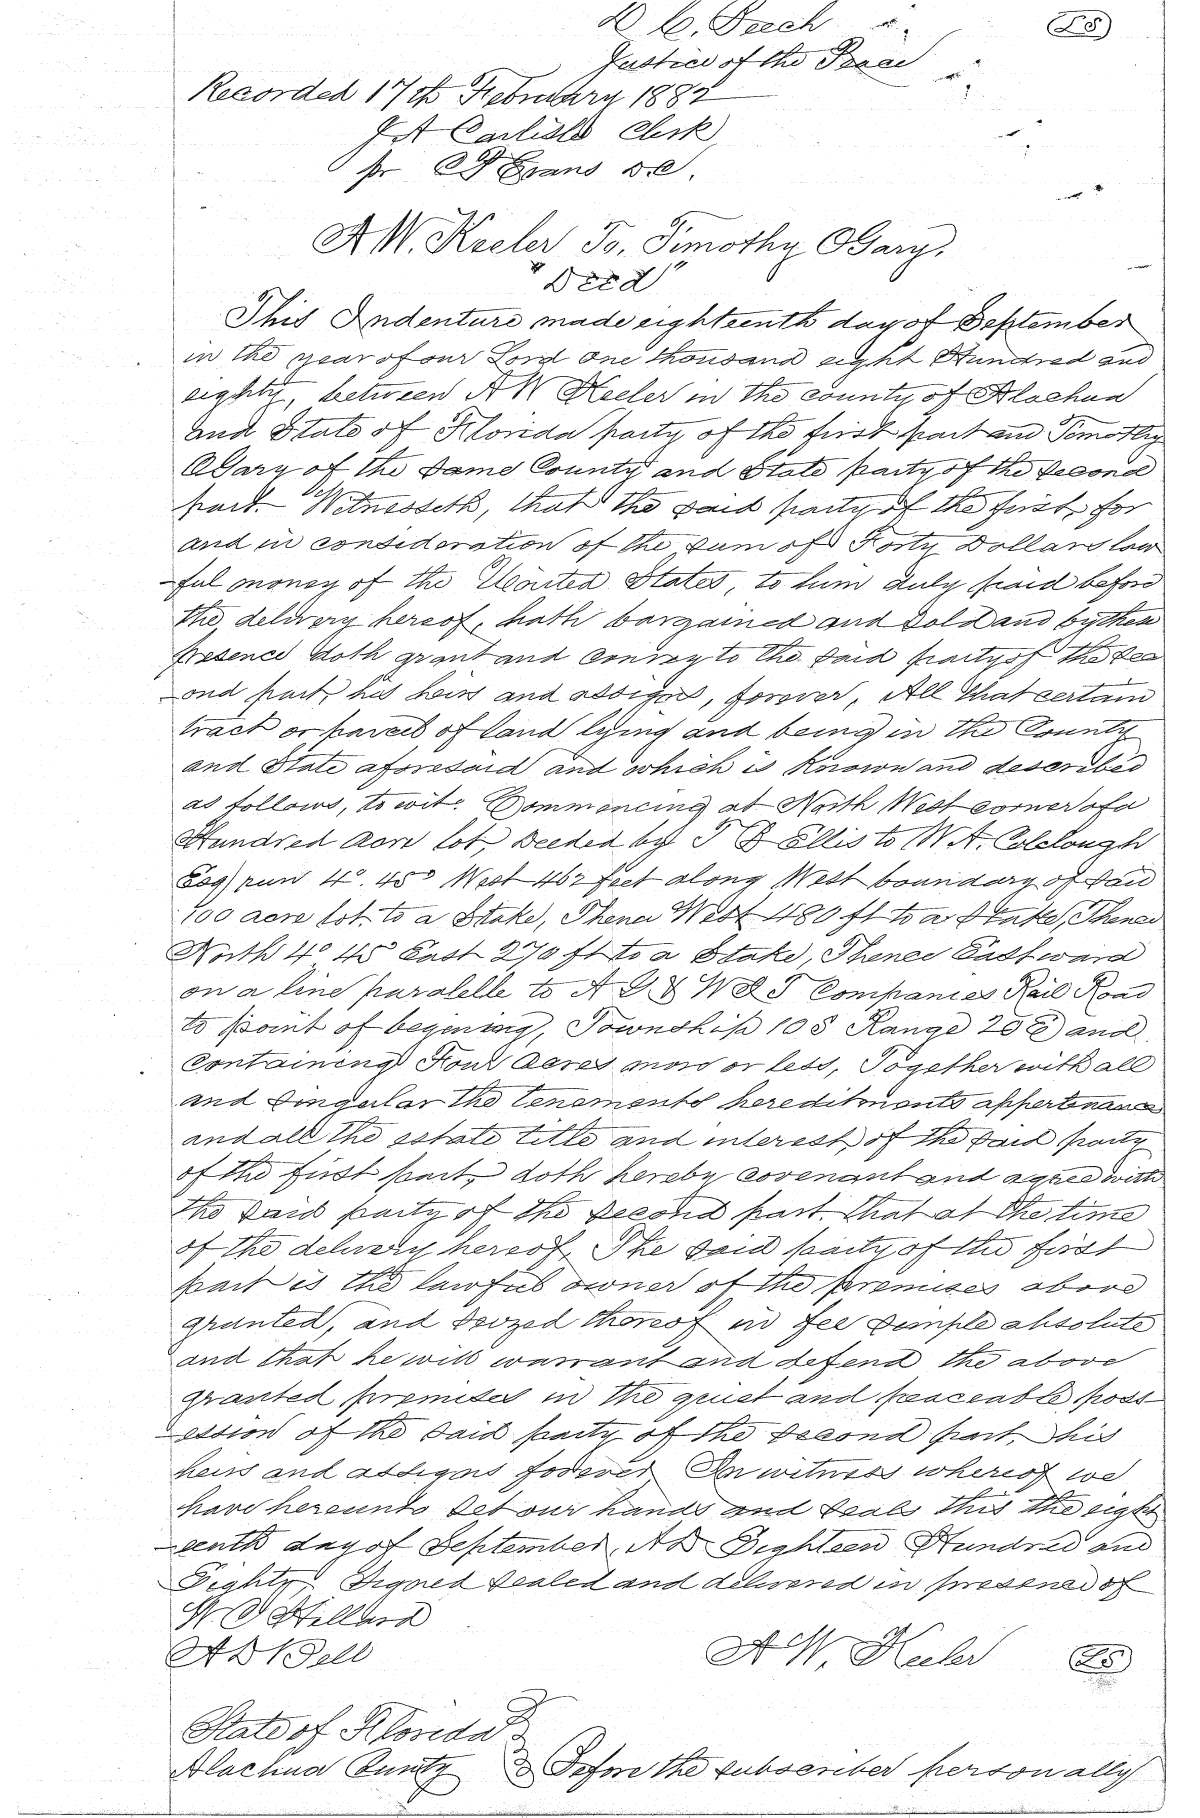 D C. Peech (LS)
Justice of the Peace
Recorded 17th February 1882
J A Carlisle Clerk,
pr C P Evans D.C.
A W. Keeler To, Timothy OGary,
"Deed"
This Indenture made eighteenth day of September
in the year of our Lord one thousand eight Hundred and
eighty, between A W Keeler in the county of Alachua
and State of Florida party of the first part and Timothy
OGary of the same County and State party of the second
part. Witnesseth, that the said party of the first, for
and in consideration of the sum of Forty Dollars law
-ful money of the United States, to him duly paid before
the delivery hereof, hath bargained and sold and by these
presence doth grant and convey to the said party of the sec
-ond part, his heirs and assigns, forever, All that certain
tract or parcel of land lying and being in the County
and State aforesaid and which is Known and described
as follows, to wit: Commencing at North West corner of a
Hundred acre lot, Deeded by T B Ellis to W. A. Colclough
Esq, run 4°. 45° West 462 feet along West boundary of said
100 acre lot. to a Stake, Thence West 480 ft to a Stake, Thence
North 4° 45° East 270 ft to a Stake, Thence Eastward
on a line paralelle to A G & W & T Companies Rail Road
to point of begining, Township 10 S Range 20 E and
Containing Four Acres more or less, Together with all
and singular the tenements hereditments appertenance
and all the estate title and interest, of the said party
of the first part, doth hereby covenant and agree with
the said party of the second part. that at the time
of the delivery hereof, The said party of the first
part is the lawful owner of the premises above
granted, and seized thereof in fee simple absolute
and that he will warrant and defend the above
granted premises in the quiet and peaceable poss
-ession of the said party of the second part, his
heirs and assigns forever In witness whereof we
have hereunto set our hands and seals this the eigh
-eenth day of September, AD Eighteen Hundred and
Eighty, Signed sealed and delivered in presence of
Hillard
A D Bell A W. Keeler (LS)
State of Florida
Alachua County Before the subscriber personally